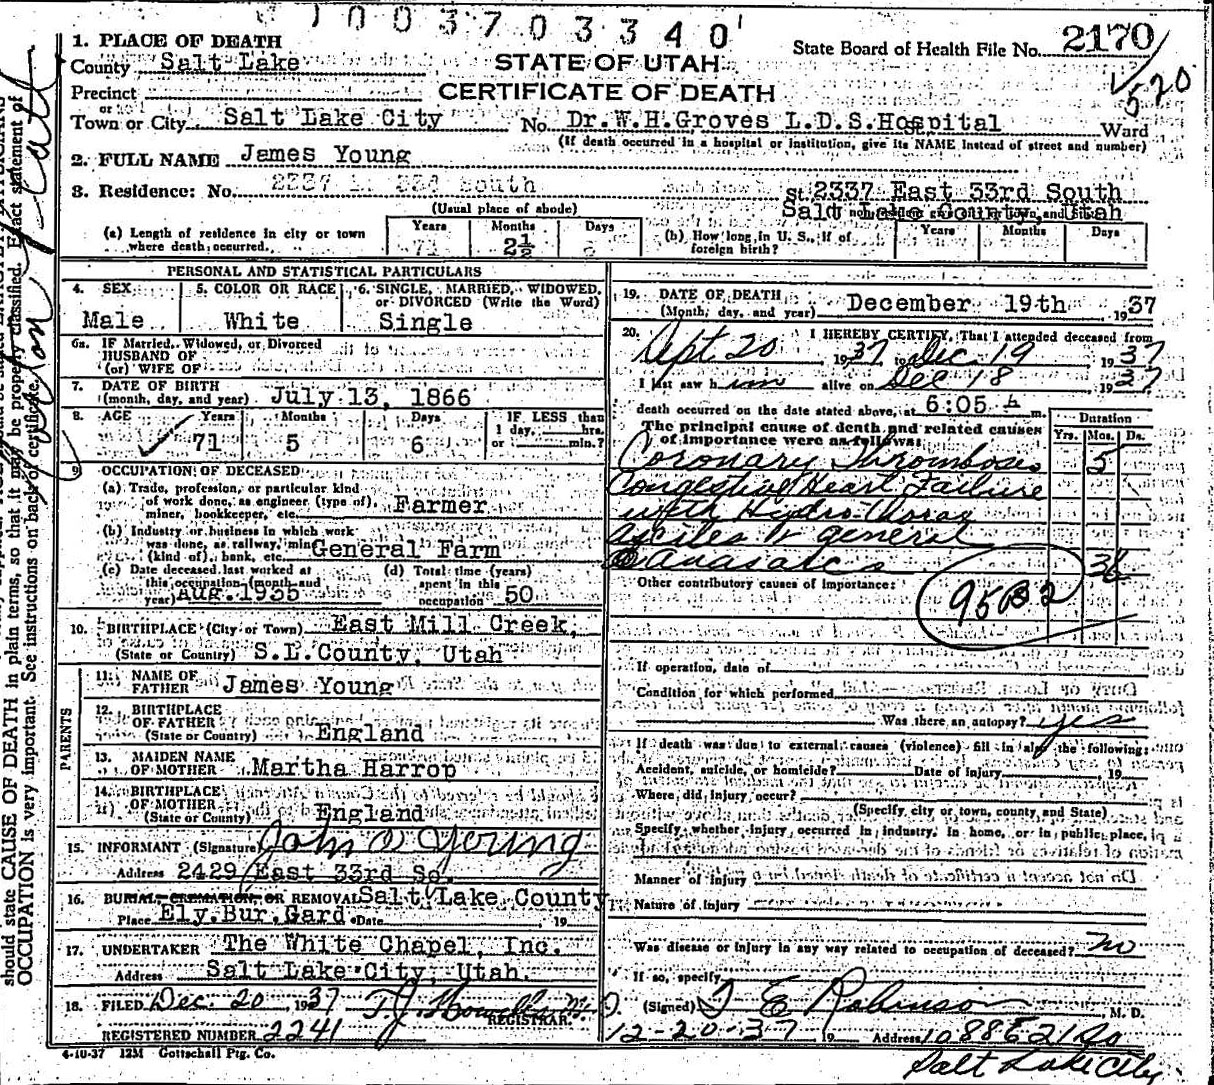 1003703340
1. PLACE OF DEATH
State Board of Health File No. 2170
County Salt Lake
STATE OF UTAH
Precinct
CERTIFICATE OF DEATH
or
Town or City Salt Lake City No. Dr.W.H.Groves L.D.S.Hospital Ward
(If death occurred in a hospital or institution, give its NAME instead of street and number)
2. FULL NAME James Young
3. Residence: No. 2337 E. 33d South St. 2337 East 33rd South
(Usual place of abode) Salt Lake County, Utah
(a) Length of residence in city or town where death occurred. Years 71 Months 2½ Days
(b) How long in U. S., if of foreign birth? Years Months Days
PERSONAL AND STATISTICAL PARTICULARS
4. SEX 5. COLOR OR RACE 6. SINGLE, MARRIED, WIDOWED, or DIVORCED (Write the Word)
Male White Single
6a. IF Married, Widowed, or Divorced
HUSBAND OF
(or) WIFE OF
7. DATE OF BIRTH
(month, day, and year) July 13, 1866
8. AGE Years Months Days IF LESS than
1 day, hrs.
71 5 6 or min.?
9. OCCUPATION OF DECEASED
(a) Trade, profession, or particular kind
of work done, as engineer (type of),
miner, bookkeeper, etc. Farmer
(b) Industry or business in which work
was done, as railway, mine
(kind of), bank, etc. General Farm
(c) Date deceased last worked at
this occupation (month and
year) Aug. 1935
(d) Total time (years)
spent in this
occupation 50
10. BIRTHPLACE (City or Town) East Mill Creek,
(State or Country) S.L.County, Utah
PARENTS
11. NAME OF
FATHER James Young
12. BIRTHPLACE
OF FATHER
(State or Country) England
13. MAIDEN NAME
OF MOTHER Martha Harrop
14. BIRTHPLACE
OF MOTHER
(State or County) England
15. INFORMANT (Signature) John D Young
Address 2429 East 33rd So.
16. BURIAL, CREMATION, OR REMOVAL Salt Lake County
Place Ely.Bur.Gard. Date 19
17. UNDERTAKER The White Chapel, Inc.
Address Salt Lake City, Utah.
18. FILED Dec. 20 1937
REGISTRAR.
REGISTERED NUMBER 2241
4-10-37 12M Gottschall Ptg. Co.
19. DATE OF DEATH
(Month, day, and year) December 19th 1937
20. I HEREBY CERTIFY, That I attended deceased from
Sept 20 1937 to Dec. 19 1937
I last saw him alive on Dec 18 1937
death occurred on the date stated above, at 6:05 A m.
The principal cause of death and related causes
of importance were as follows:
Duration
Yrs. Mos. Ds.
Coronary Thromboses 5
Congestive Heart Failure
with Hydro-thorax
Ascites & General
Anasarca 3
Other contributory causes of importance:
If operation, date of
Condition for which performed
Was there an autopsy? yes
If death was due to external causes (violence) fill in also the following:
Accident, suicide, or homicide? Date of injury 19
Where did injury occur?
(Specify city or town, county and State)
Specify whether injury occurred in industry, in home, or in public place,
Manner of injury
Nature of injury
Was disease or injury in any way related to occupation of deceased? no
If so, specify
(Signed) T E Robinson, M. D.
12-20-37 19 Address 1088 E 21 So
Salt Lake City
should state CAUSE OF DEATH in plain terms, so that it may be properly classified. Exact statement of
OCCUPATION is very important. See instructions on back of certificate.